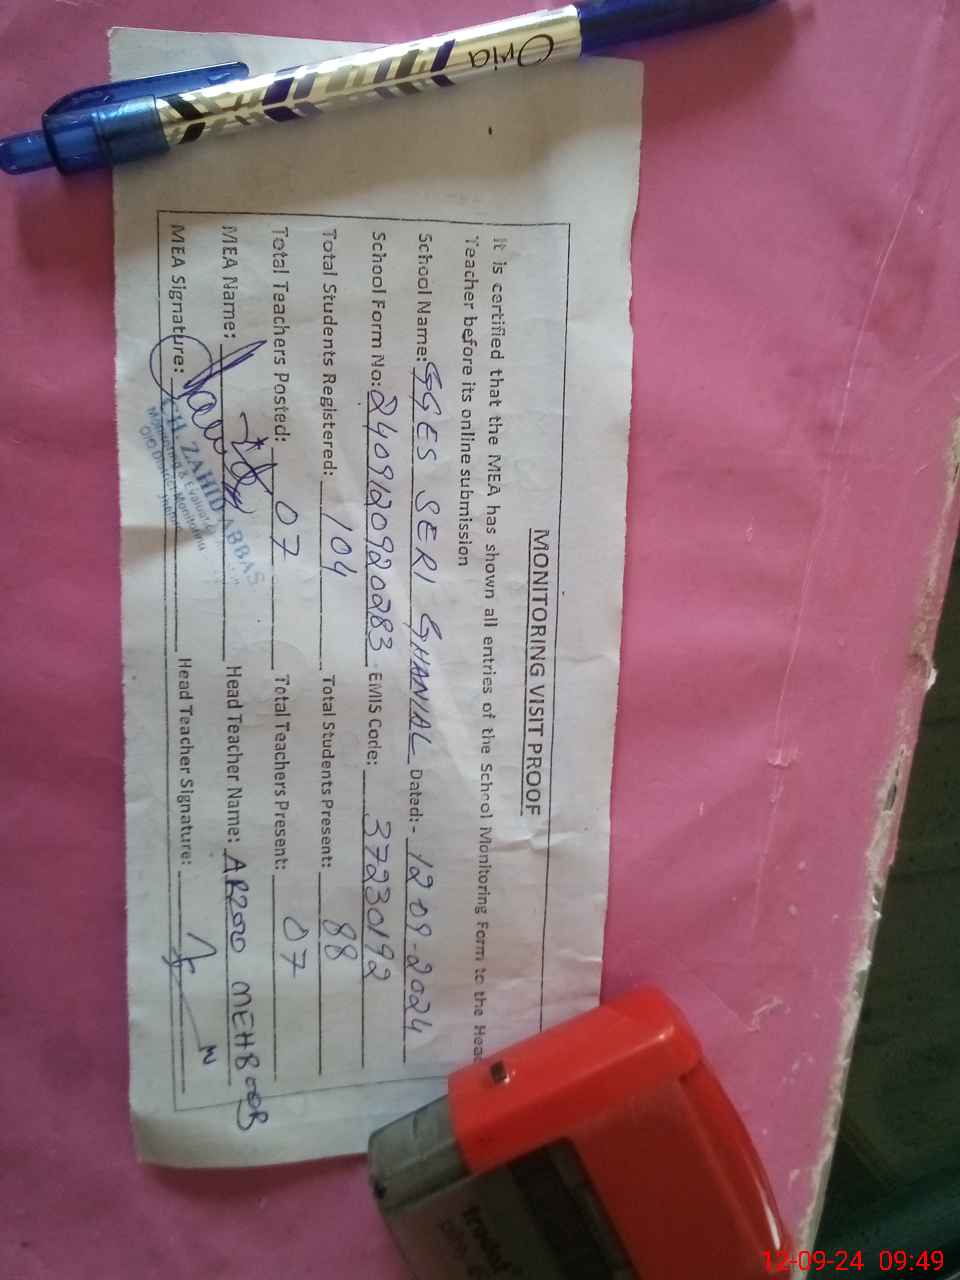 MONITORING VISIT PROOF
It is certified that the MEA has shown all entries of the School Monitoring Form to the Head
Teacher before its online submission
School Name: GGES SERI GHANIAL Dated:- 12-09-2024
School Form No: 2409120920283 EMIS Code: 37230192
Total Students Registered: 104 Total Students Present: 88
Total Teachers Posted: 07 Total Teachers Present: 07
MEA Name: Head Teacher Name: ARZOO MEHBOOB
MEA Signature: Head Teacher Signature:
CH. ZAHID ABBAS
Monitoring & Evaluation
O/O District Monitoring
Oria
trodat
12-09-24 09:49